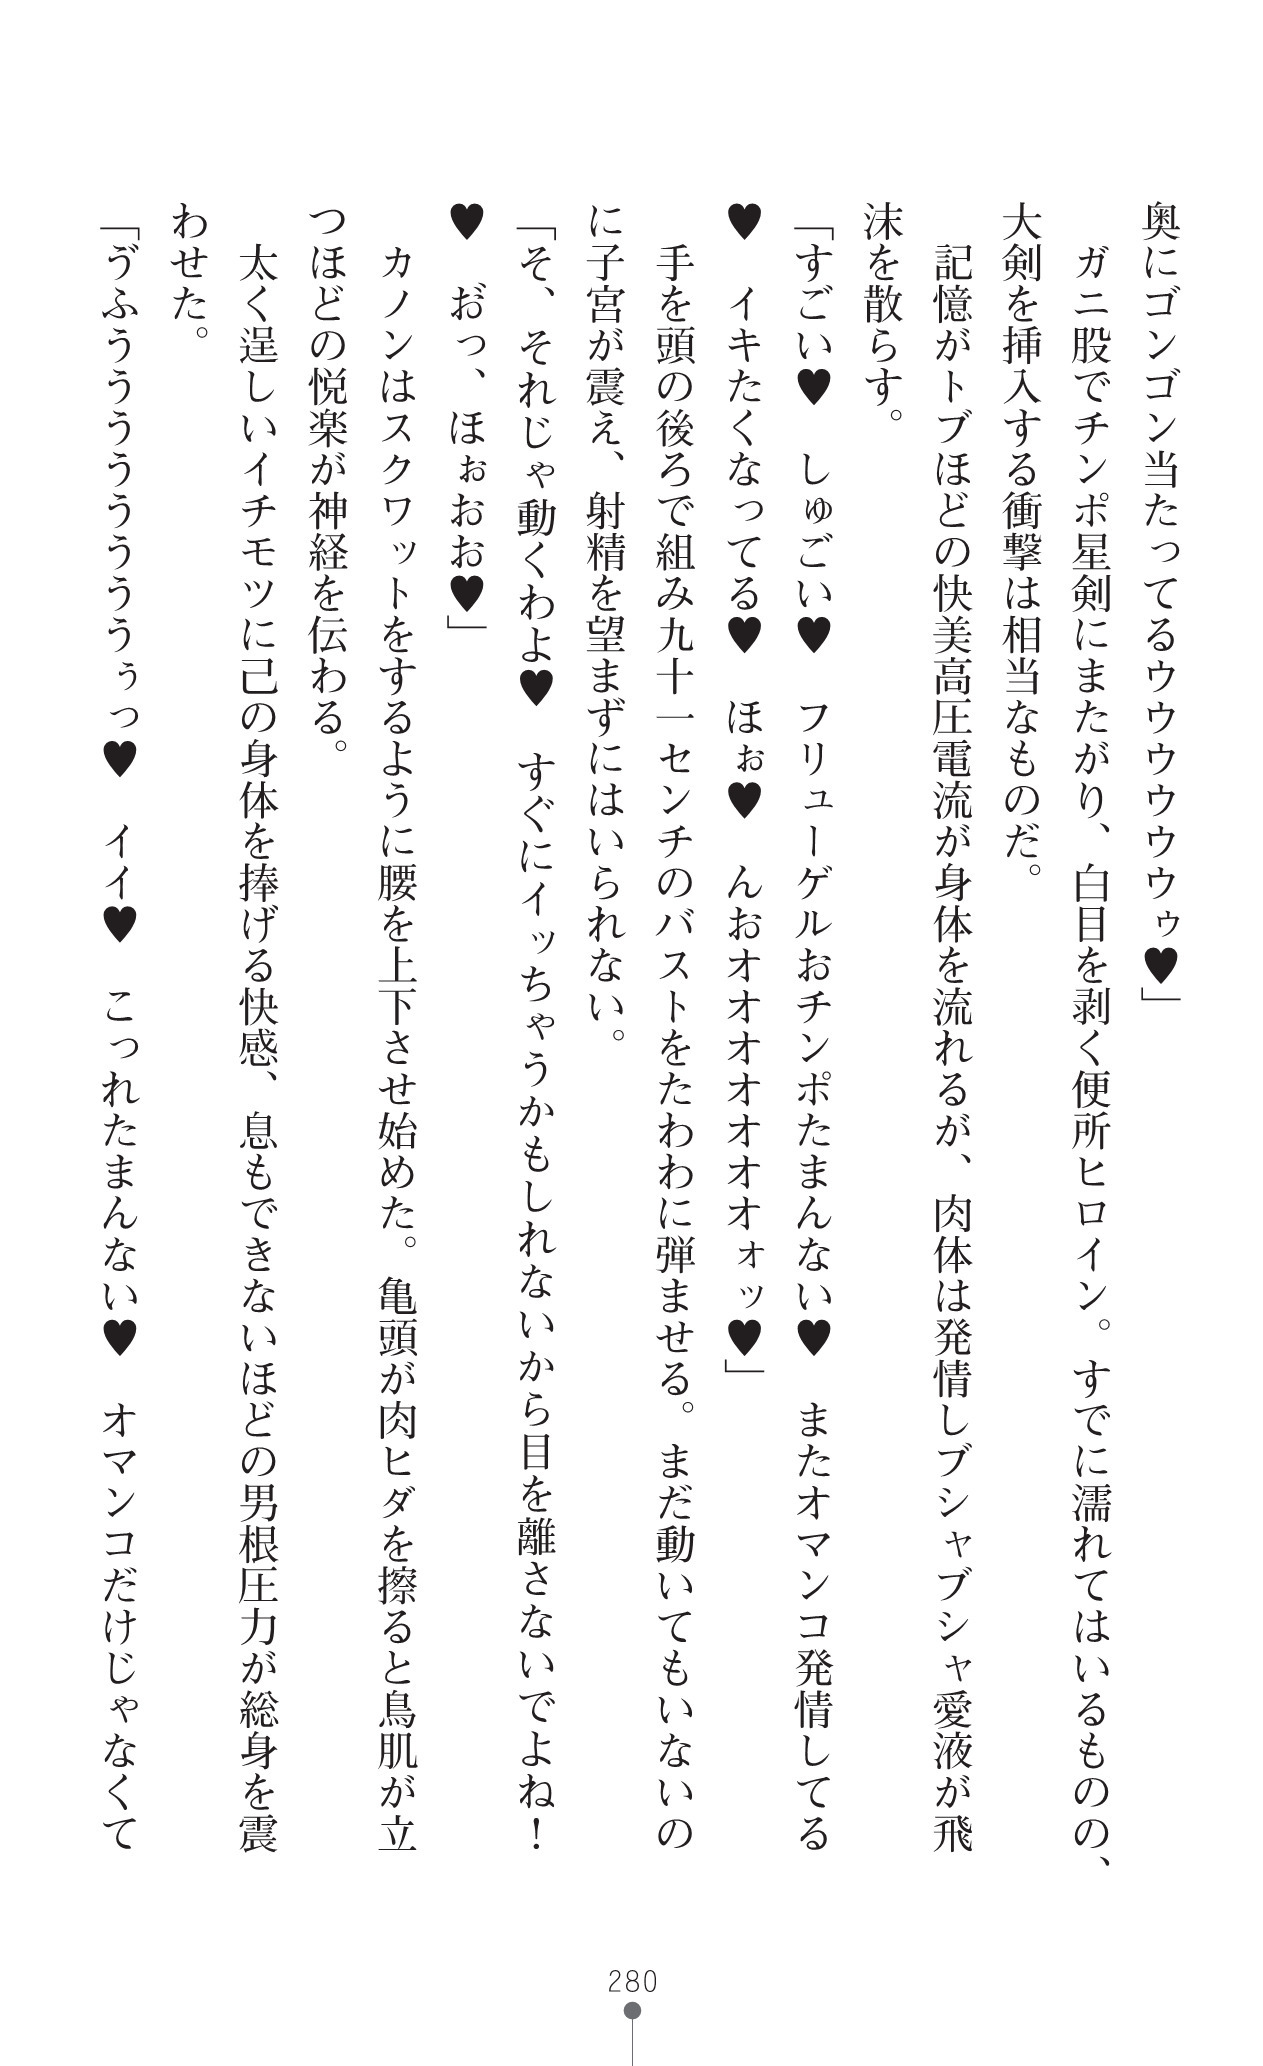 奥にゴンゴン当たってるウウウウウウゥ♥」
　ガニ股でチンポ星剣にまたがり、白目を剥く便所ヒロイン。すでに濡れてはいるものの、
大剣を挿入する衝撃は相当なものだ。
　記憶がトブほどの快美高圧電流が身体を流れるが、肉体は発情しブシャブシャ愛液が飛
沫を散らす。
「すごい♥　しゅごい♥　フリューゲルおチンポたまんない♥　またオマンコ発情してる
♥　イキたくなってる♥　ほぉ♥　んおオオオオオオオォッ♥」
　手を頭の後ろで組み九十一センチのバストをたわわに弾ませる。まだ動いてもいないの
に子宮が震え、射精を望まずにはいられない。
「そ、それじゃ動くわよ♥　すぐにイッちゃうかもしれないから目を離さないでよね！
♥　お゛っ、ほぉおお♥」
　カノンはスクワットをするように腰を上下させ始めた。亀頭が肉ヒダを擦ると鳥肌が立
つほどの悦楽が神経を伝わる。
　太く逞しいイチモツに己の身体を捧げる快感、息もできないほどの男根圧力が総身を震
わせた。
「う゛ふうううううううぅっ♥　イイ♥　こっれたまんない♥　オマンコだけじゃなくて
280